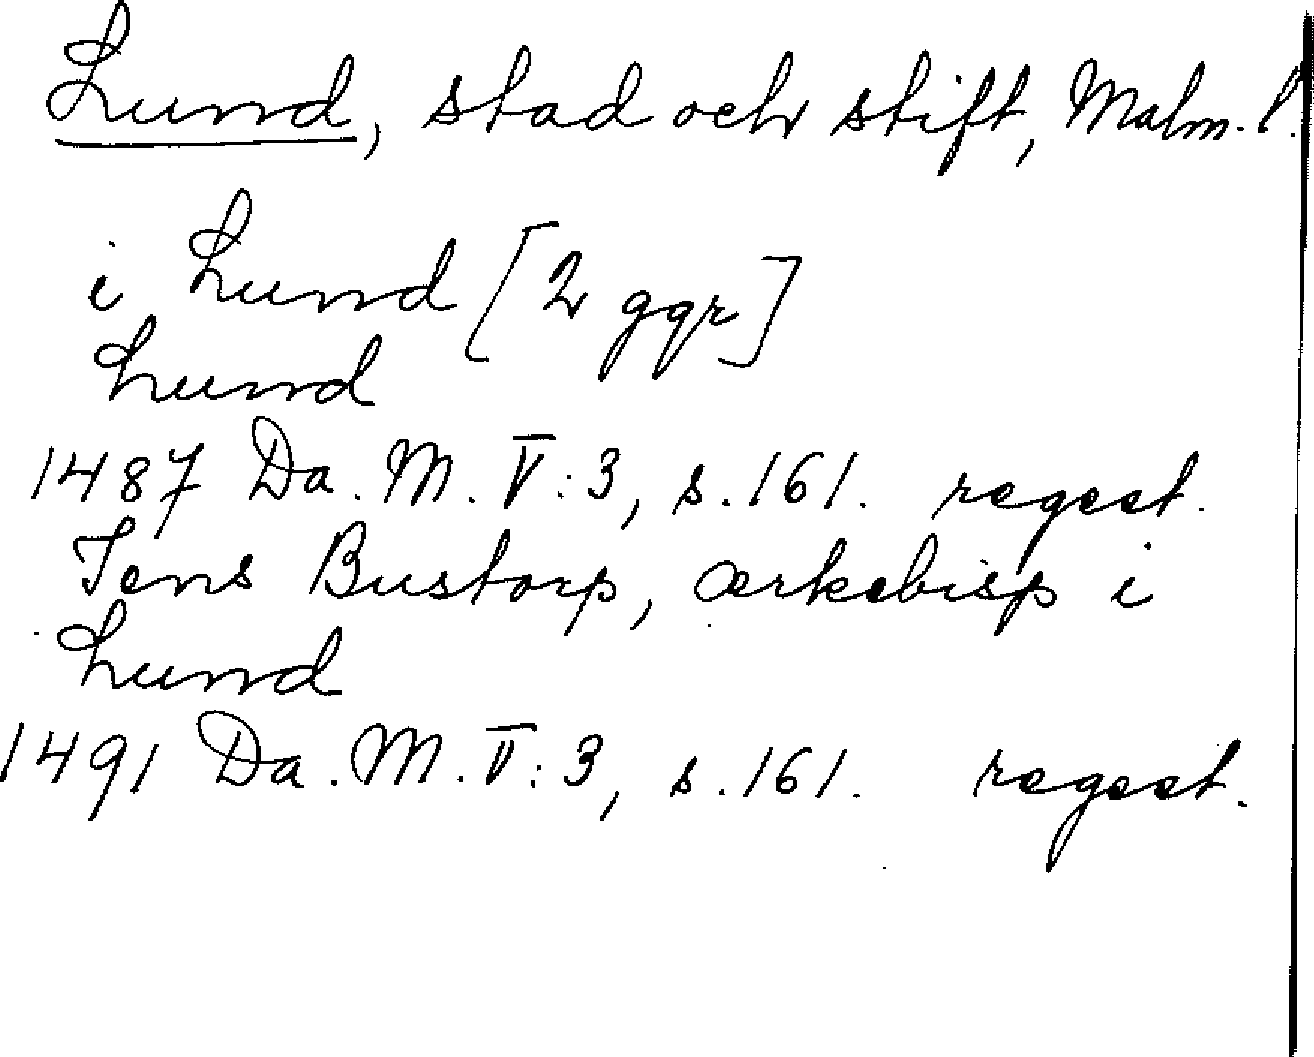 Lund, stad och stift, Malm. l.
i Lund [2 ggr]
Lund
1487 Da. M. V:3, s. 161. regest.
Jens Bustorp, ærkebisp i
Lund
1491 Da. M. V:3, s. 161. regest.